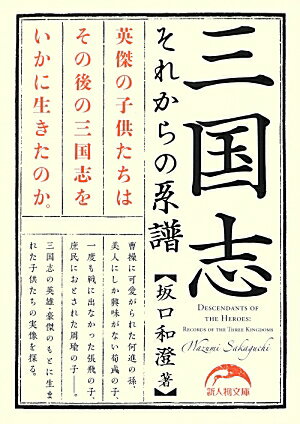 三国志
それからの系譜
【坂口和澄 著】
英傑の子供たちは
その後の三国志を
いかに生きたのか。
曹操に可愛がられた何進の孫、
美人にしか興味がない荀彧の子、
一度も戦に出なかった張飛の子、
庶民におとされた周瑜の子――。
三国志の英雄・豪傑のもとに生ま
れた子供たちの実像を探る。
DESCENDANTS OF
THE HEROES:
RECORDS OF THE THREE KINGDOMS
Wazumi Sakaguchi
新人物文庫